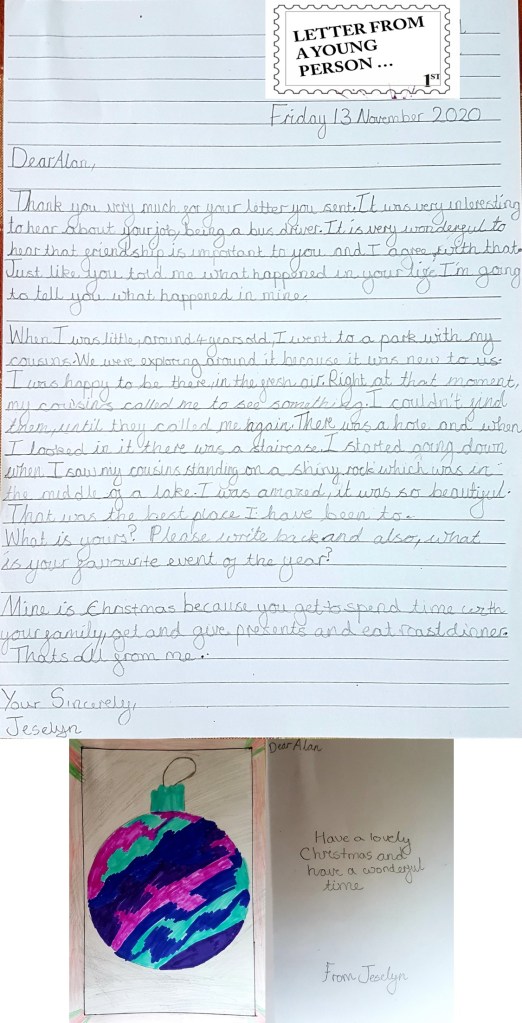 LETTER FROM
A YOUNG
PERSON ...
1ST
Friday 13 November 2020
Dear Alan,
Thank you very much for your letter you sent. It was very interesting
to hear about your job, being a bus driver. It is very wonderful to
hear that friendship is important to you and I agree with that.
Just like you told me what happened in your life I'm going
to tell you what happened in mine.
When I was little, around 4 years old, I went to a park with my
cousins. We were exploring around it because it was new to us.
I was happy to be there, in the fresh air. Right at that moment,
my cousins called me to see something. I couldn't find
them, until they called me again. There was a hole and when
I looked in it there was a staircase. I started going down
when I saw my cousins standing on a shiny rock which was in
the middle of a lake. I was amazed, it was so beautiful.
That was the best place I have been to.
What is yours? Please write back and also, what
is your favourite event of the year?
Mine is Christmas because you get to spend time with
your family, get and give presents and eat roast dinner.
Thats all from me.
Your Sincerely,
Jeselyn
Dear Alan
Have a lovely
Christmas and
have a wonderful
time
From Jeselyn